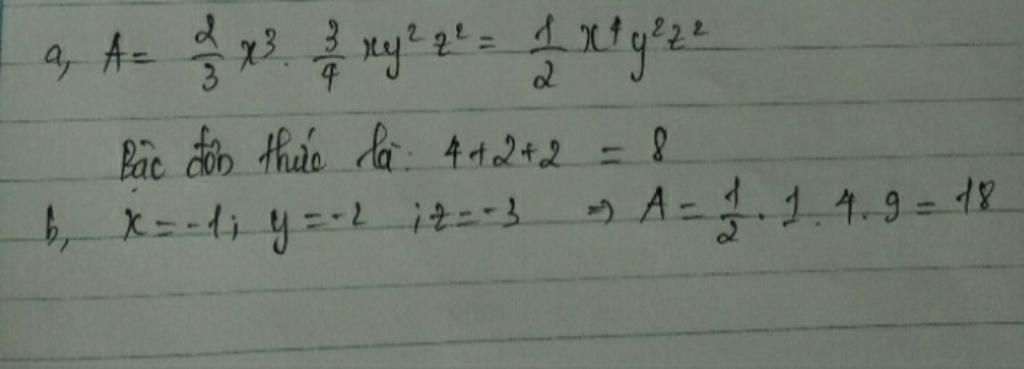 a, A = 2/3 x³ . 3/4 xy² z² = 1/2 x⁴y²z²
Bậc đơn thức là: 4+2+2 = 8
b, x = -1; y = -2 ; z = -3 => A = 1/2 . 1 . 4 . 9 = 18